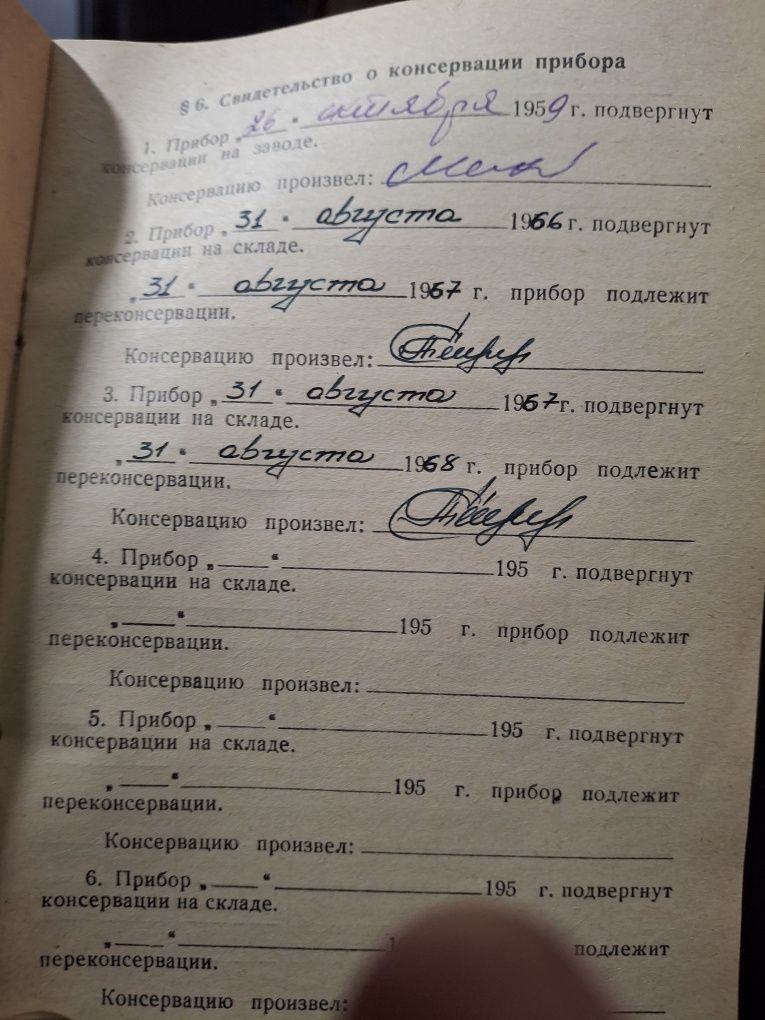 § 6. Свидетельство о консервации прибора
1. Прибор „26“ октября 1959 г. подвергнут
консервации на заводе.
Консервацию произвел:
2. Прибор „31“ августа 1966 г. подвергнут
консервации на складе.
„31“ августа 1967 г. прибор подлежит
переконсервации.
Консервацию произвел:
3. Прибор „31“ августа 1967 г. подвергнут
консервации на складе.
„31“ августа 1968 г. прибор подлежит
переконсервации.
Консервацию произвел:
4. Прибор „___“ ___ 195 г. подвергнут
консервации на складе.
„___“ ___ 195 г. прибор подлежит
переконсервации.
Консервацию произвел:
5. Прибор „___“ ___ 195 г. подвергнут
консервации на складе.
„___“ ___ 195 г. прибор подлежит
переконсервации.
Консервацию произвел:
6. Прибор „___“ ___ 195 г. подвергнут
консервации на складе.
„___“ ___ подлежит
переконсервации.
Консервацию произвел: